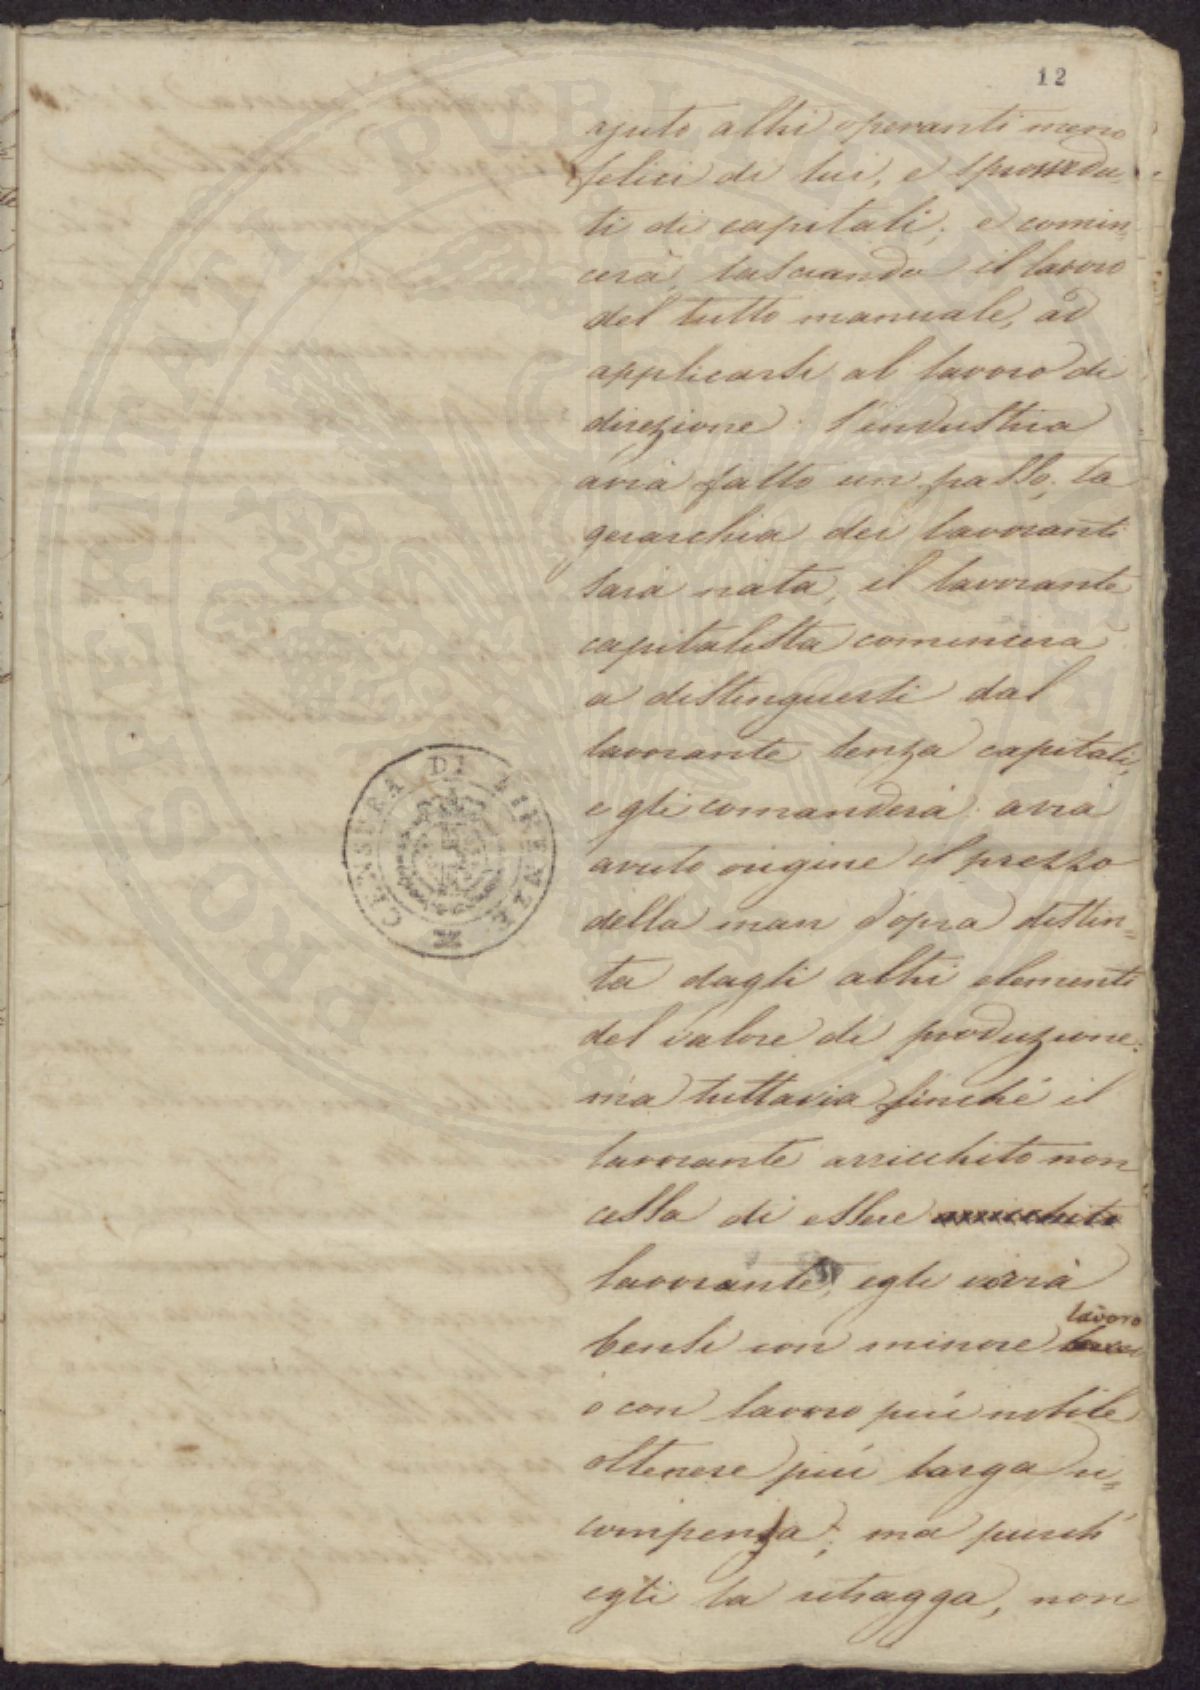 12
ajuto altri operanti meno
felici di lui, e sprovvedu-
ti di capitali; e comin=
cerà, lasciando il lavoro
del tutto manuale, ad
applicarsi al lavoro di
direzione. l'industria
avrà fatto un passo; la
gerarchia dei lavoranti
sarà nata, il lavorante
capitalista comincierà
a distinguersi dal
lavorante senza capitali,
e gli comanderà: avrà
avuto origine il prezzo
della man d'opra distin=
ta dagli altri elementi
del valore di produzione:
ma tuttavia finché il
lavorante arricchito non
cessa di essere arricchito
lavorante, egli vorrà
lavoro
bensi con minore
o con lavoro più nobile
ottenere più larga ri=
compensa; ma purch'
egli la ritragga, non
CENSURA DI FIRENZE
PROSPERITATI PVBLICAE